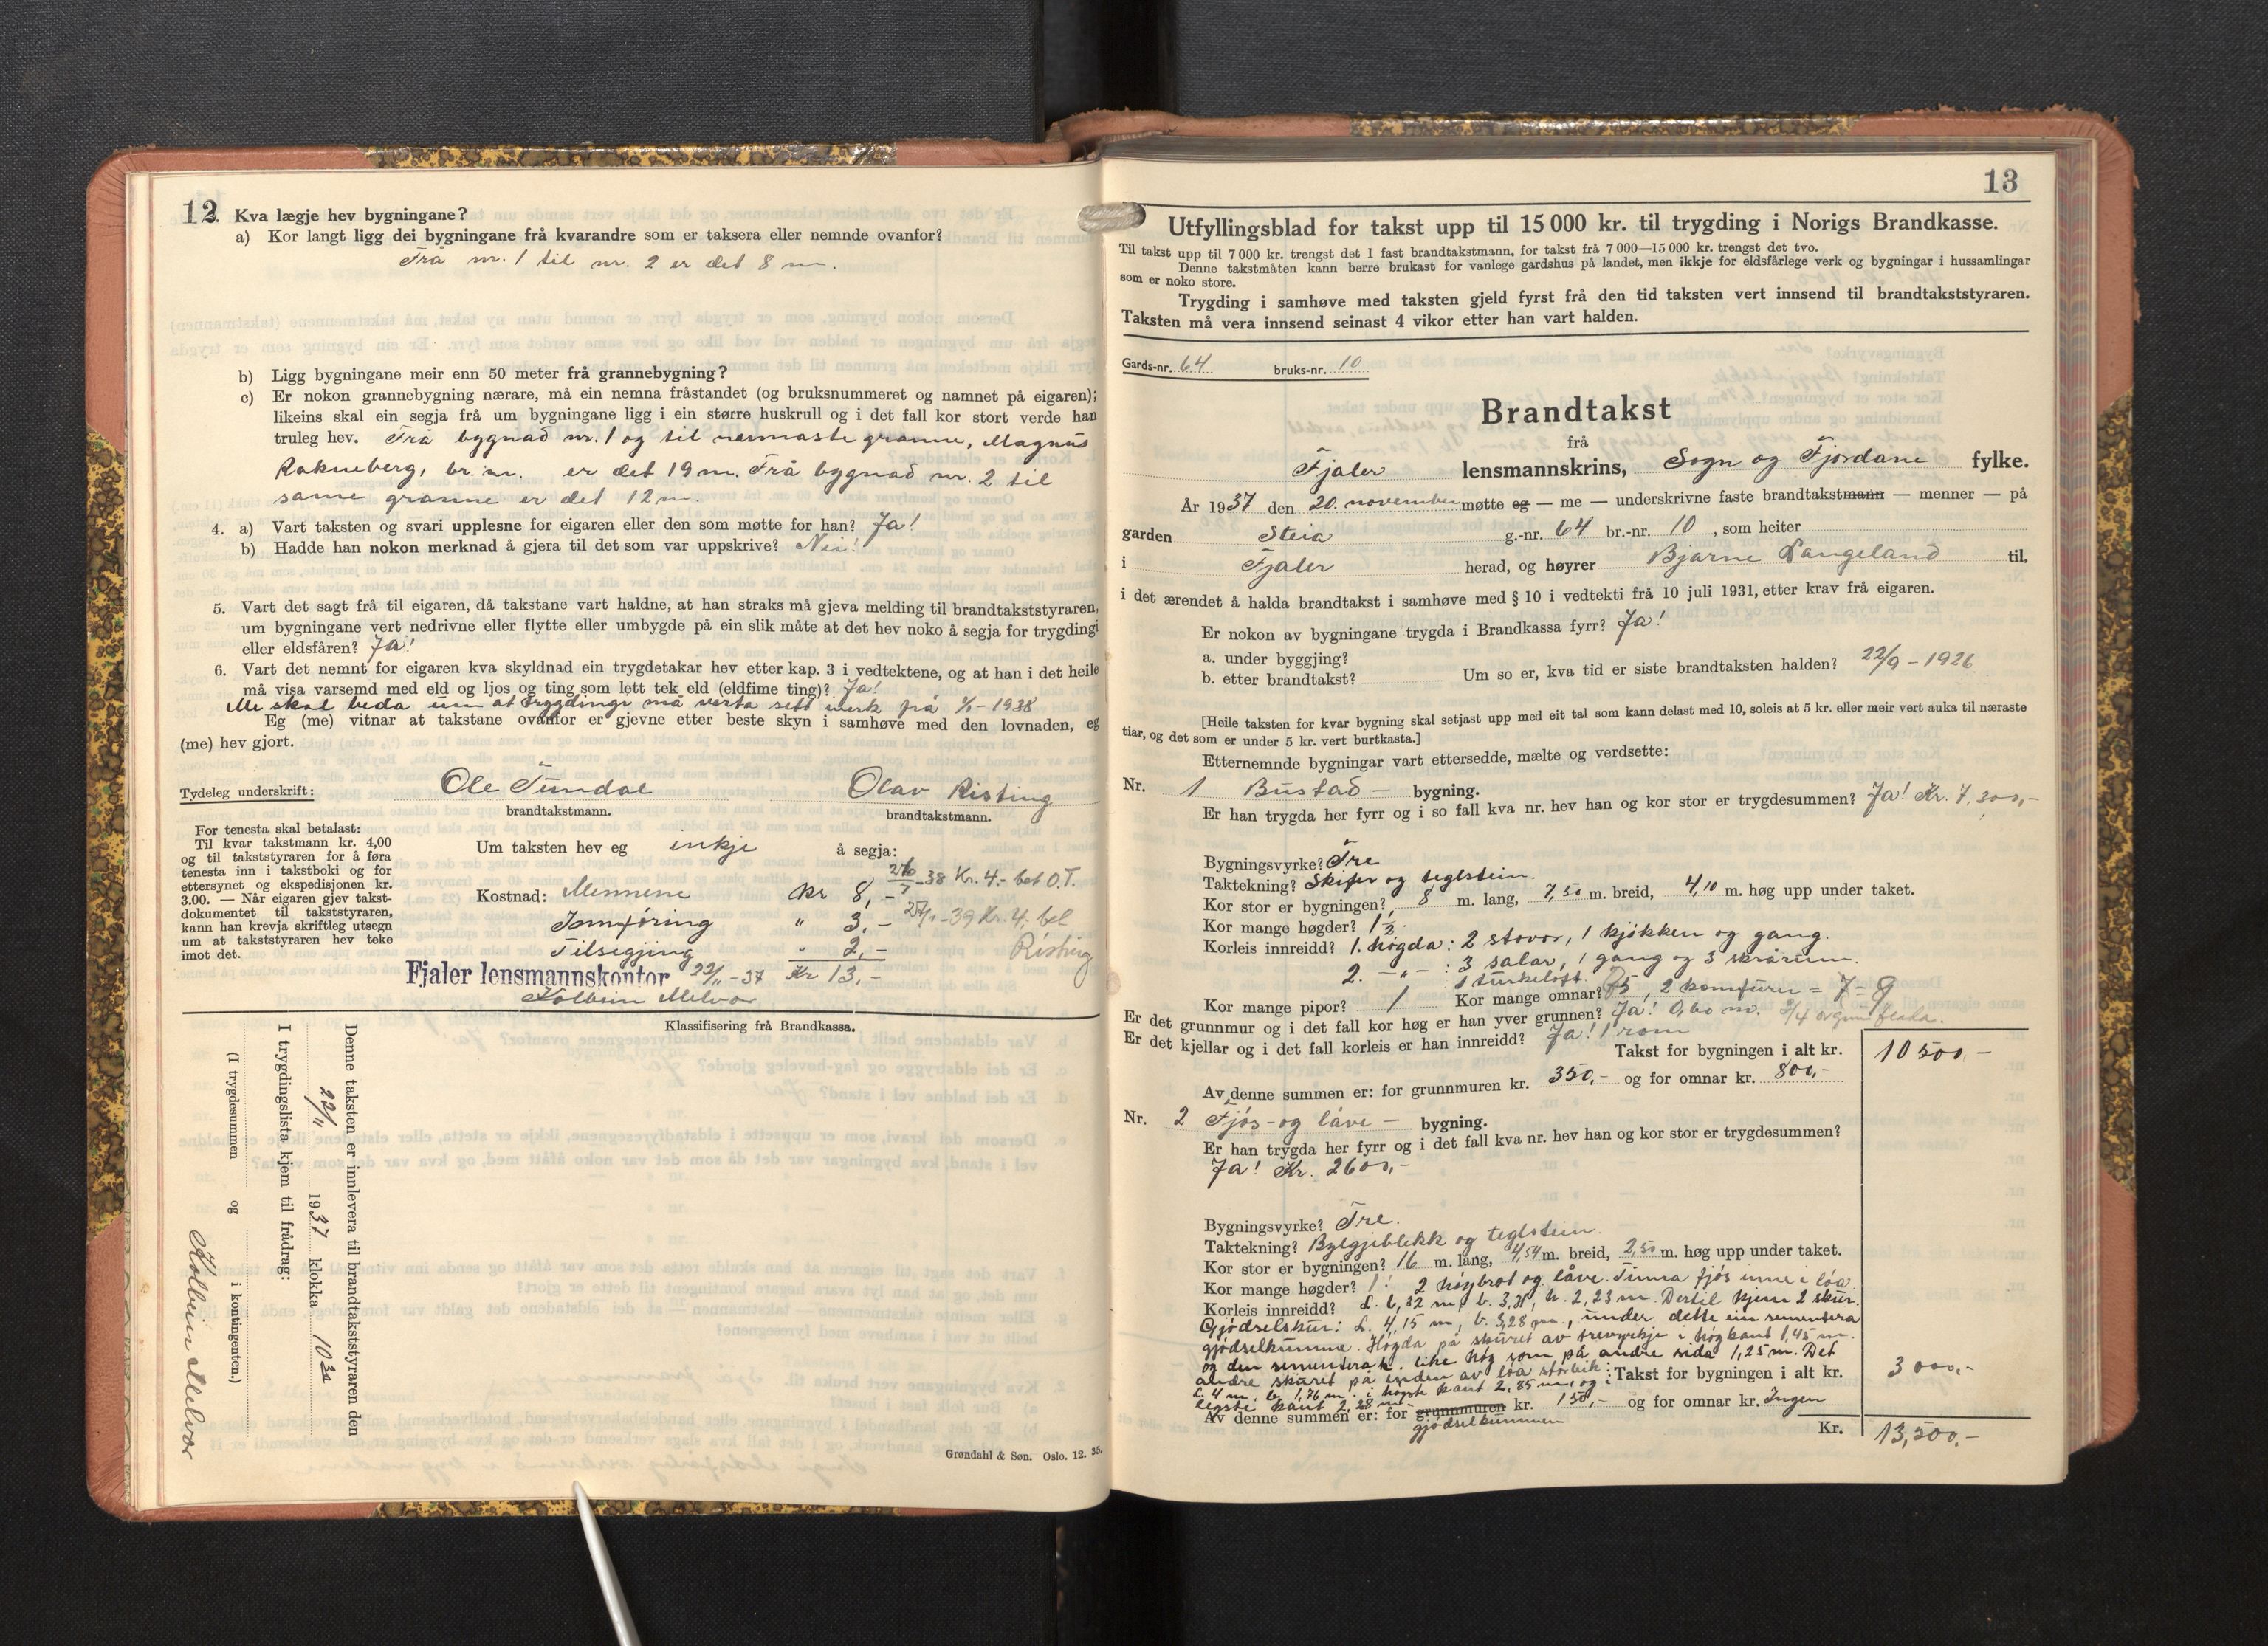 12
3. Kva lægje hev bygningane?
a) Kor langt ligg dei bygningane frå kvarandre som er taksera eller nemnde ovanfor?
Frå nr. 1 til nr. 2 er det 8 m.
b) Ligg bygningane meir enn 50 meter frå grannebygning?
c) Er nokon grannebygning nærare, må ein nemna fråstandet (og bruksnummeret og namnet på eigaren);
likeins skal ein segja frå um bygningane ligg i ein større huskrull og i det fall kor stort verde han
truleg hev. Frå bygnad nr. 1 og til nærmaste granne, Magnus
Rakneberg, br. nr. er det 19 m. Frå bygnad nr. 2 til
same granne er det 12 m.
4. a) Vart taksten og svari upplesne for eigaren eller den som møtte for han? Ja!
b) Hadde han nokon merknad å gjera til det som var uppskrive? Nei!
5. Vart det sagt frå til eigaren, då takstane vart haldne, at han straks må gjeva melding til brandtakststyraren,
um bygningane vert nedrivne eller flytte eller umbygde på ein slik måte at det hev noko å segja for trygdingi
eller eldsfåren? Ja!
6. Vart det nemnt for eigaren kva skyldnad ein trygdetakar hev etter kap. 3 i vedtektene, og at han i det heile
må visa varsemd med eld og ljos og ting som lett tek eld (eldfime ting)? Ja!
Me skal beda um at trygdingi må verta sett i verk på 1/1-1938
Eg (me) vitnar at takstane ovanfor er gjevne etter beste skyn i samhøve med den lovnaden, eg
(me) hev gjort.
Tydeleg underskrift: Ole Tundal Olav Risting
brandtakstmann. brandtakstmann.
For tenesta skal betalast:
Til kvar takstmann kr. 4,00
og til takststyraren for å føra
tenesta inn i takstboki og for
ettersynet og ekspedisjonen kr.
3.00. — Når eigaren gjev takst-
dokumentet til takststyraren,
kann han krevja skriftleg utsegn
um at takststyraren hev teke
imot det.
Um taksten hev eg inkje å segja:
Kostnad: Mennene kr 8,- -38 Kr. 4.- bet O.T.
Innføring " 3,- -39 Kr. 4. bet
Tilsegjing " 2,- Risting
Fjaler lensmannskontor 22/11-37 Kr 13,-
Kolbein Melvær
Klassifisering frå Brandkassa.
Denne taksten er innlevera til brandtakststyraren den
22/11 1937 klokka 10 30
I trygdingslista kjem til frådrag:
(I trygdesummen og i kontingenten.)
Kolbein Melvær
Grøndahl & Søn. Oslo. 12. 35.
13
Utfyllingsblad for takst upp til 15 000 kr. til trygding i Norigs Brandkasse.
Til takst upp til 7 000 kr. trengst det 1 fast brandtakstmann, for takst frå 7 000—15 000 kr. trengst det tvo.
Denne takstmåten kann berre brukast for vanlege gardshus på landet, men ikkje for eldsfårlege verk og bygningar i hussamlingar
som er noko store.
Trygding i samhøve med taksten gjeld fyrst frå den tid taksten vert innsend til brandtakststyraren.
Taksten må vera innsend seinast 4 vikor etter han vart halden.
Gards-nr. 64 bruks-nr. 10
Brandtakst
frå
Fjaler lensmannskrins, Sogn og Fjordane fylke.
År 1937 den 20. november møtte eg — me — underskrivne faste brandtakstmann — menner — på
garden Steia g.-nr. 64 br.-nr. 10, som heiter
i Fjaler herad, og høyrer Bjarne Langeland til,
i det ærendet å halda brandtakst i samhøve med § 10 i vedtekti frå 10 juli 1931, etter krav frå eigaren.
Er nokon av bygningane trygda i Brandkassa fyrr? Ja!
a. under byggjing?
b. etter brandtakst? Um so er, kva tid er siste brandtaksten halden? 22/9-1926
[Heile taksten for kvar bygning skal setjast upp med eit tal som kann delast med 10, soleis at 5 kr. eller meir vert auka til næraste
tiar, og det som er under 5 kr. vert burtkasta.]
Etternemnde bygningar vart ettersedde, mælte og verdsette:
Nr. 1 Bustad- bygning.
Er han trygda her fyrr og i so fall kva nr. hev han og kor stor er trygdesummen? Ja! Kr. 7,300,-
Bygningsvyrke? Tre
Taktekning? Skifer og teglstein.
Kor stor er bygningen? 8 m. lang, 7,50 m. breid, 4,10 m. høg upp under taket.
Kor mange høgder? 1½.
Korleis innreidd? 1. høgda: 2 stovor, 1 kjøkken og gang.
2. -"- : 3 salar, 1 gang og 3 skrårum.
1 turkeloft.
Kor mange pipor? 1 Kor mange omnar? 5, 2 komfurer = 7 = 9
Er det grunnmur og i det fall kor høg er han yver grunnen? Ja! 0,60 m. 3/4 av grunnflata.
Er det kjellar og i det fall korleis er han innreidd? Ja! 1 rom
Takst for bygningen i alt kr. 10 500,-
Av denne summen er: for grunnmuren kr. 350,- og for omnar kr. 800,-
Nr. 2 Fjøs- og låve- bygning.
Er han trygda her fyrr og i det fall kva nr. hev han og kor stor er trygdesummen?
Ja! Kr. 2600,-
Bygningsvyrke? Tre.
Taktekning? Bylgjeblekk og teglstein.
Kor stor er bygningen? 16 m. lang, 4,54 m. breid, 2,50 m. høg upp under taket.
Kor mange høgder? 1! 2 høybrot og låve. Timra fjøs inne i løa
Korleis innreidd? L. 6,32 m, b. 3,31, h. 2,23 m. Dertil kjem 2 skur.
Gjødselskur: L. 4,15 m, b. 3,28 m., under dette ein sementera
gjødselkumme. Høgda på skuret av trevyrkje i høgkant 1,45 m.
og den sementera k. like høg som på andre sida 1,25 m. Det
andre skuret på enden av løa storleik: Takst for bygningen i alt kr. 3 000,-
L. 4 m. b. 1,76 m. i høgste kant 2,85 m, og i
legste kant 2,28 m
Av denne summen er: for grunnmuren kr. 150,- og for omnar kr. Ingen
gjødselkummen
Kr. 13,500,-